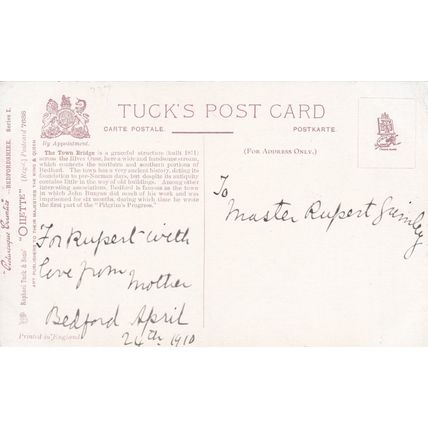 "Picturesque Counties" —BEDFORDSHIRE. Series I.
"OILETTE" [Regd.] Postcard 7638
Raphael Tuck & Sons'
ART PUBLISHERS TO THEIR MAJESTIES THE KING & QUEEN
By Appointment.
TUCK'S POST CARD
CARTE POSTALE.
POSTKARTE
(FOR ADDRESS ONLY.)
The Town Bridge is a graceful structure (built 1811)
across the River Ouse, here a wide and handsome stream,
which connects the northern and southern portions of
Bedford. The town has a very ancient history, dating its
foundation to pre-Norman days, but despite its antiquity
contains little in the way of old buildings. Among other
interesting associations, Bedford is famous as the town
in which John Bunyan did much of his work and was
imprisoned for six months, during which time he wrote
the first part of the "Pilgrim's Progress."
For Rupert with
love from Mother
Bedford April
24th 1910
Printed in England.
To
Master Rupert Grimley